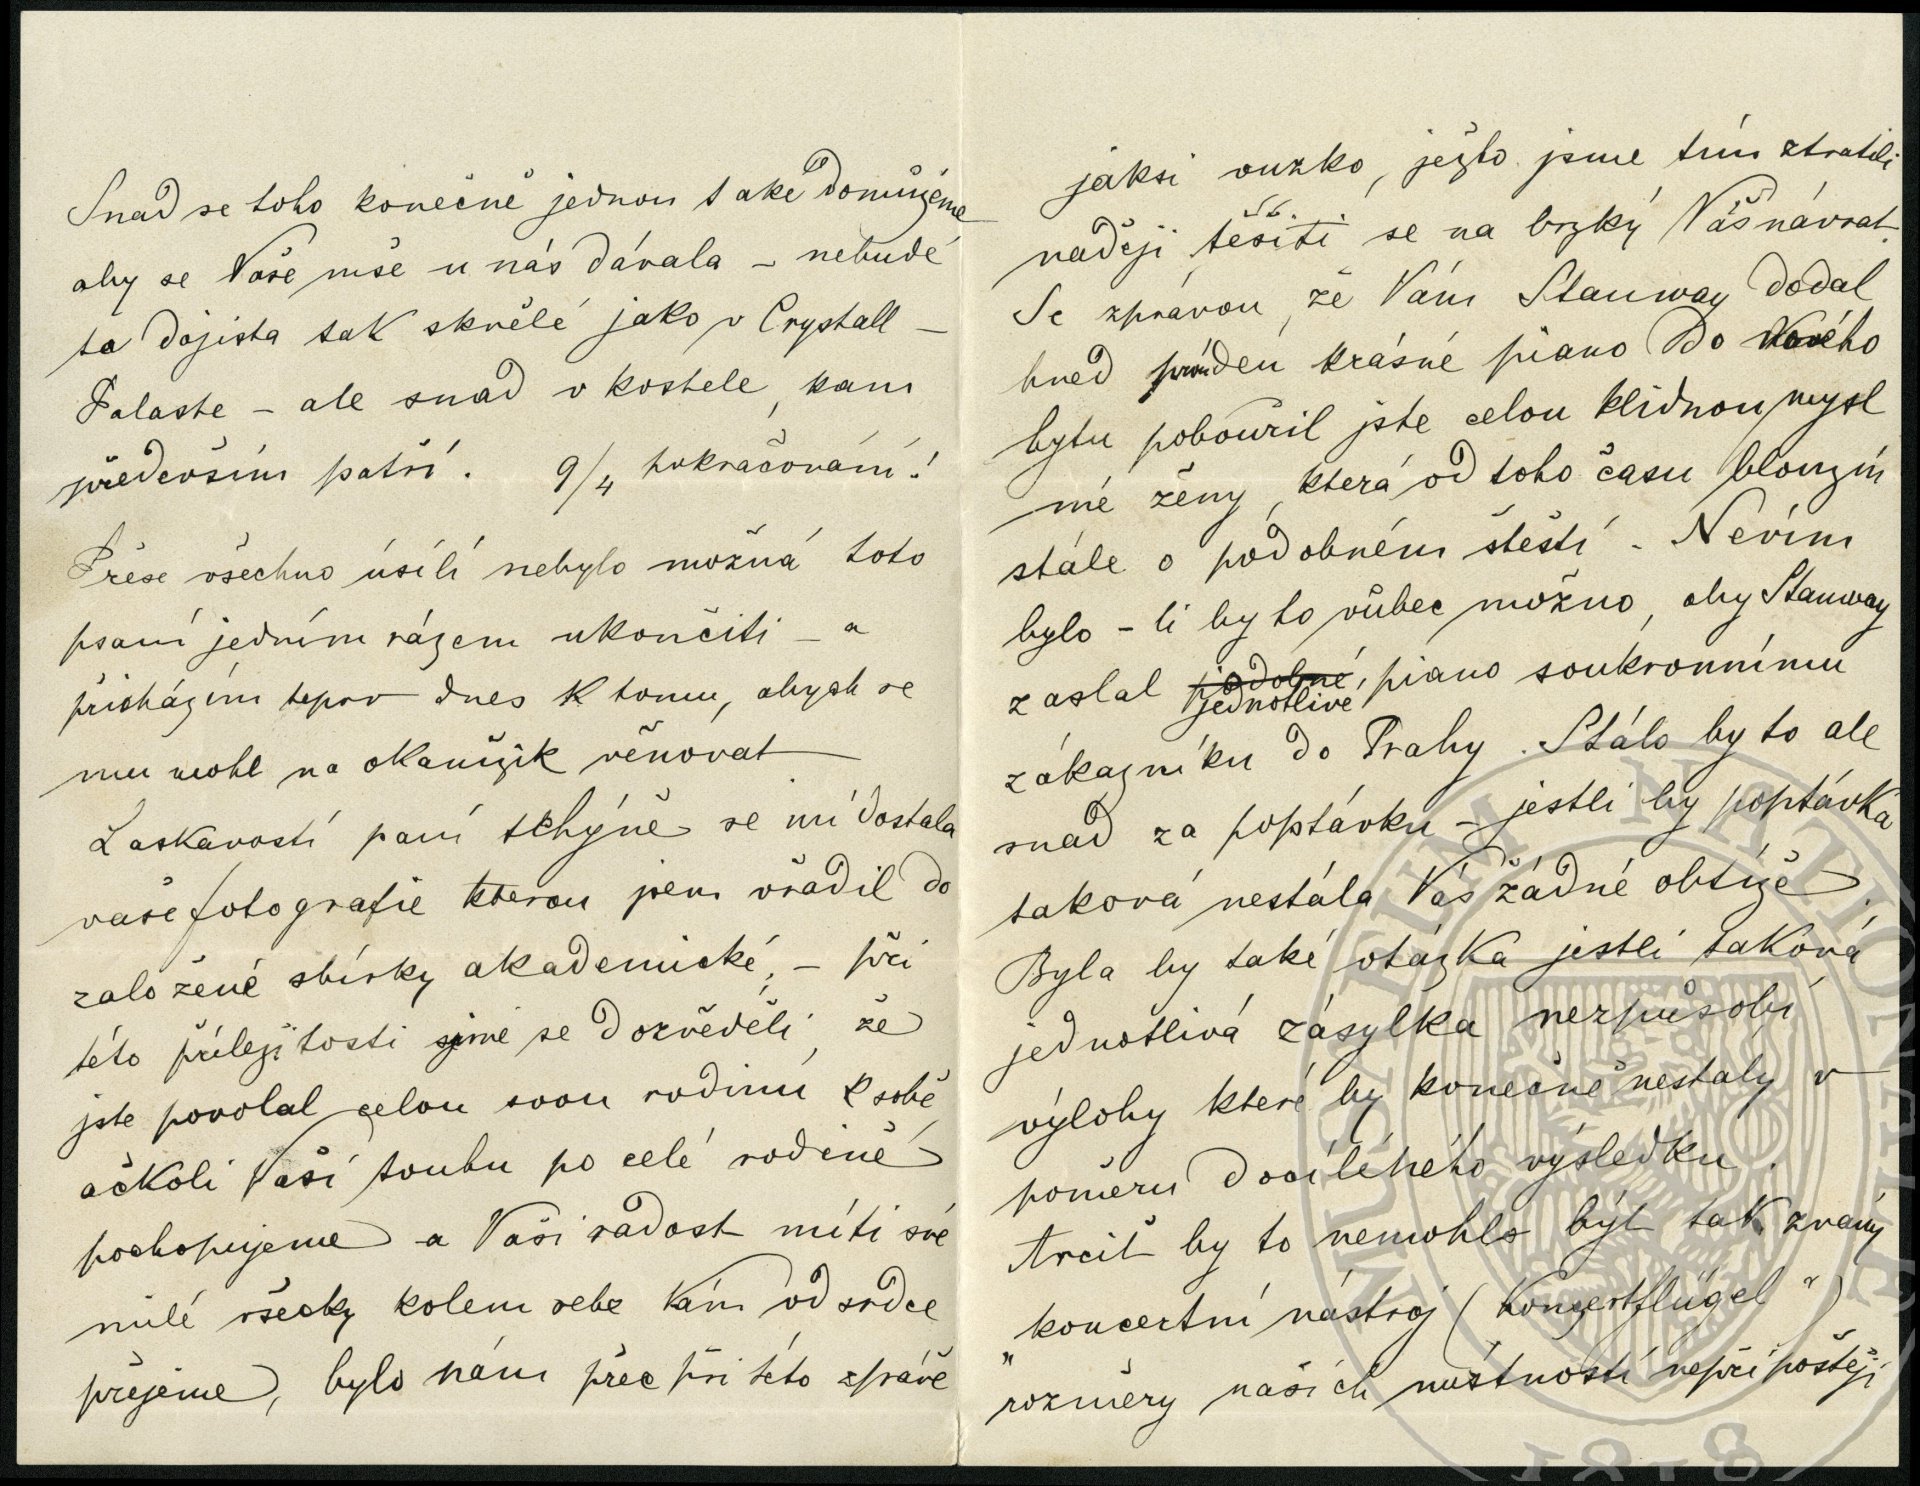 Snad se toho konečně jednou také domůžeme
aby se Vaše mše u nás dávala – nebude
ta dojista tak skvělé jako v Crystall –
Palaste – ale snad v kostele, kam
především patří. 9/4 pokračování!
Přese všechno úsílí nebylo možná toto
psaní jedním rázem ukončiti – a
přicházím teprv dnes k tomu, abych se
mu mohl na okamžik věnovat
Laskavostí paní tchýně se mi dostala
vaše fotografie kterou jsem vřadil do
založené sbírky akademické, – při
této příležitosti sme se dozvěděli, že
jste povolal celou svou rodinu k sobě
ačkoli Vaší touhu po celé rodině
pochopujeme a Vaši radost míti své
milé všecky kolem sebe Vám od srdce
přejeme, bylo nám přec při této zprávě
jaksi ouzko, ježto jsme tím ztratili
naději těšiti se na brzký Váš návrat.
Se zprávou, že Vám Stanway dodal
hned krásné piano do Nového
bytu pobouřil jste celou klidnou mysl
mé ženy, která od toho času blouzní
stále o podobném štěstí – Nevím
bylo – li by to vůbec možno, aby Stanway
zaslal podobné jednotlivé piano soukromnímu
zákazníku do Prahy. Stálo by to ale
snad za poptávku – jestli by poptávka
taková nestála Vás žádné obtíže.
Byla by také otázka jestli taková
jednotlivá zásylka nezpůsobí
výlohy které by konečně nestaly v
poměru docíleného výsledku.
Arciť by to nemohlo být tak zvaný
koncertní nástroj („Konzertflügel“)
rozměry našich místností nepřipouštějí
MUSAEUM NATIONALE
1818